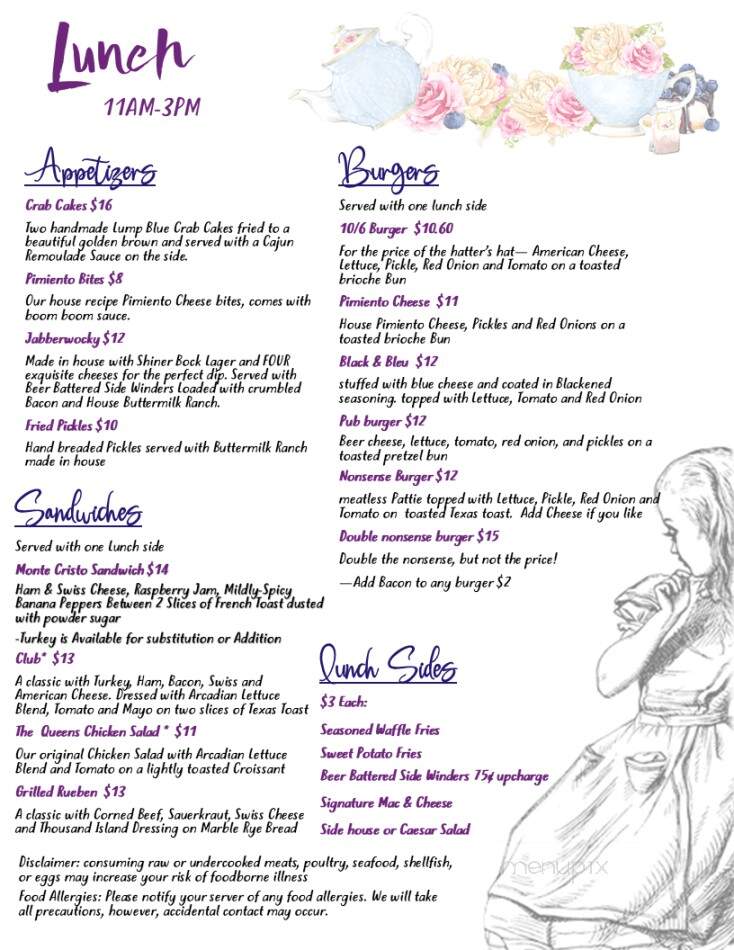 Lunch
11AM-3PM
Appetizers
Crab Cakes $16
Two handmade Lump Blue Crab Cakes fried to a
beautiful golden brown and served with a Cajun
Remoulade Sauce on the side.
Pimiento Bites $8
Our house recipe Pimiento Cheese bites, comes with
boom boom sauce.
Jabberwocky $12
Made in house with Shiner Bock Lager and FOUR
exquisite cheeses for the perfect dip. Served with
Beer Battered Side Winders Loaded with crumbled
Bacon and House Buttermilk Ranch.
Fried Pickles $10
Hand breaded Pickles served with Buttermilk Ranch
made in house
Sandwiches
Served with one lunch side
Monte Cristo Sandwich $14
Ham & Swiss Cheese, Raspberry Jam, Mildly-Spicy
Banana Peppers Between 2 Slices of French Toast dusted
with powder sugar
-Turkey is Available for substitution or Addition
Club* $13
A classic with Turkey, Ham, Bacon, Swiss and
American Cheese. Dressed with Arcadian Lettuce
Blend, Tomato and Mayo on two slices of Texas Toast
The Queens Chicken Salad * $11
Our original Chicken Salad with Arcadian Lettuce
Blend and Tomato on a lightly toasted Croissant
Grilled Rueben $13
A classic with Corned Beef, Sauerkraut, Swiss Cheese
and Thousand Island Dressing on Marble Rye Bread
Burgers
Served with one lunch side
10/6 Burger $10.60
For the price of the hatter's hat— American Cheese,
Lettuce, Pickle, Red Onion and Tomato on a toasted
brioche Bun
Pimiento Cheese $11
House Pimiento Cheese, Pickles and Red Onions on a
toasted brioche Bun
Black & Bleu $12
stuffed with blue cheese and coated in Blackened
seasoning. topped with Lettuce, Tomato and Red Onion
Pub burger $12
Beer cheese, lettuce, tomato, red onion, and pickles on a
toasted pretzel bun
Nonsense Burger $12
meatless Pattie topped with Lettuce, Pickle, Red Onion and
Tomato on toasted Texas toast. Add Cheese if you like
Double nonsense burger $15
Double the nonsense, but not the price!
—Add Bacon to any burger $2
Lunch Sides
$3 Each:
Seasoned Waffle Fries
Sweet Potato Fries
Beer Battered Side Winders 75¢ upcharge
Signature Mac & Cheese
Side house or Caesar Salad
Disclaimer: consuming raw or undercooked meats, poultry, seafood, shellfish,
or eggs may increase your risk of foodborne illness
Food Allergies: Please notify your server of any food allergies. We will take
all precautions, however, accidental contact may occur.
menupix